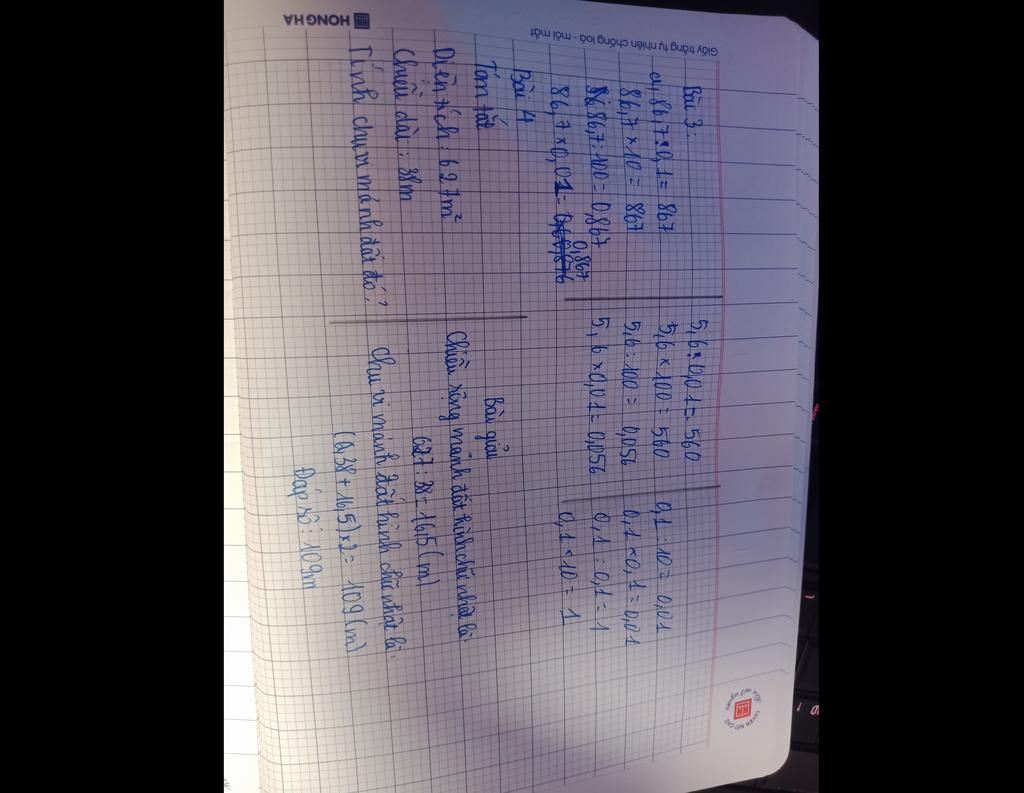 Giấy trắng tự nhiên chống loá - mỏi mắt
HONG HA
LUYỆN NÉT CHỮ
Bài 3.
a, 86,7 : 0,1 = 867
86,7 × 10 = 867
86,7 : 100 = 0,867
0,867
86,7 × 0,01 =
5,6 : 0,01 = 560
5,6 × 100 = 560
5,6 : 100 = 0,056
5,6 × 0,01 = 0,056
0,1 : 10 = 0,01
0,1 × 0,1 = 0,01
0,1 : 0,1 = 1
0,1 × 10 = 1
Bài 4
Tóm tắt
Diện tích : 627m²
Chiều dài : 38m
Tính chu vi mảnh đất đó?
Bài giải
Chiều rộng mảnh đất hình chữ nhật là:
627 : 38 = 16,5 (m)
Chu vi mảnh đất hình chữ nhật là:
(38 + 16,5) × 2 = 109 (m)
Đáp số : 109m